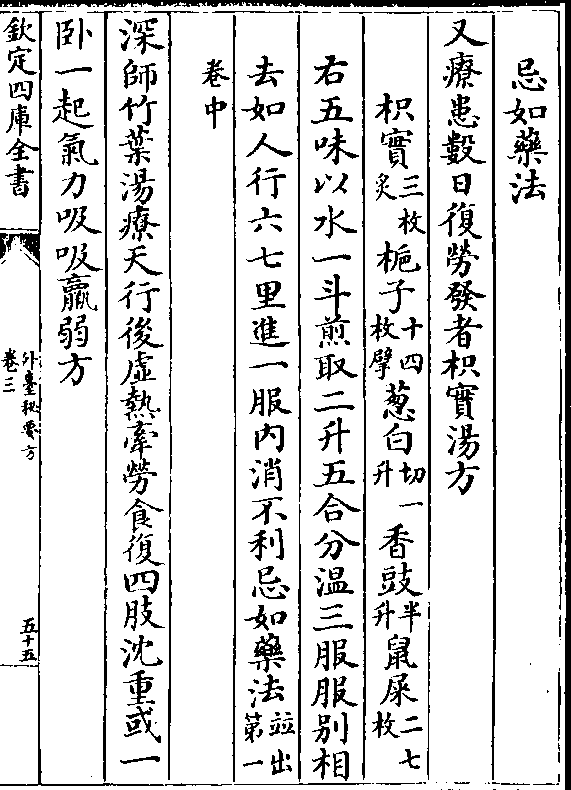 忌如藥法
又療患數日復勞發者枳實湯方
枳實三枚炙梔子十四枚擘葱白切一升香豉半升鼠屎二七枚
右五味以水一斗煎取二升五合分溫三服服別相
去如人行六七里進一服內消不利忌如藥法並出第一
卷中
深師竹葉湯療天行後虛熱牽勞食復四肢沈重或一
卧一起氣力吸吸羸弱方
欽定四庫全書
外臺秘要方
卷三
五十五